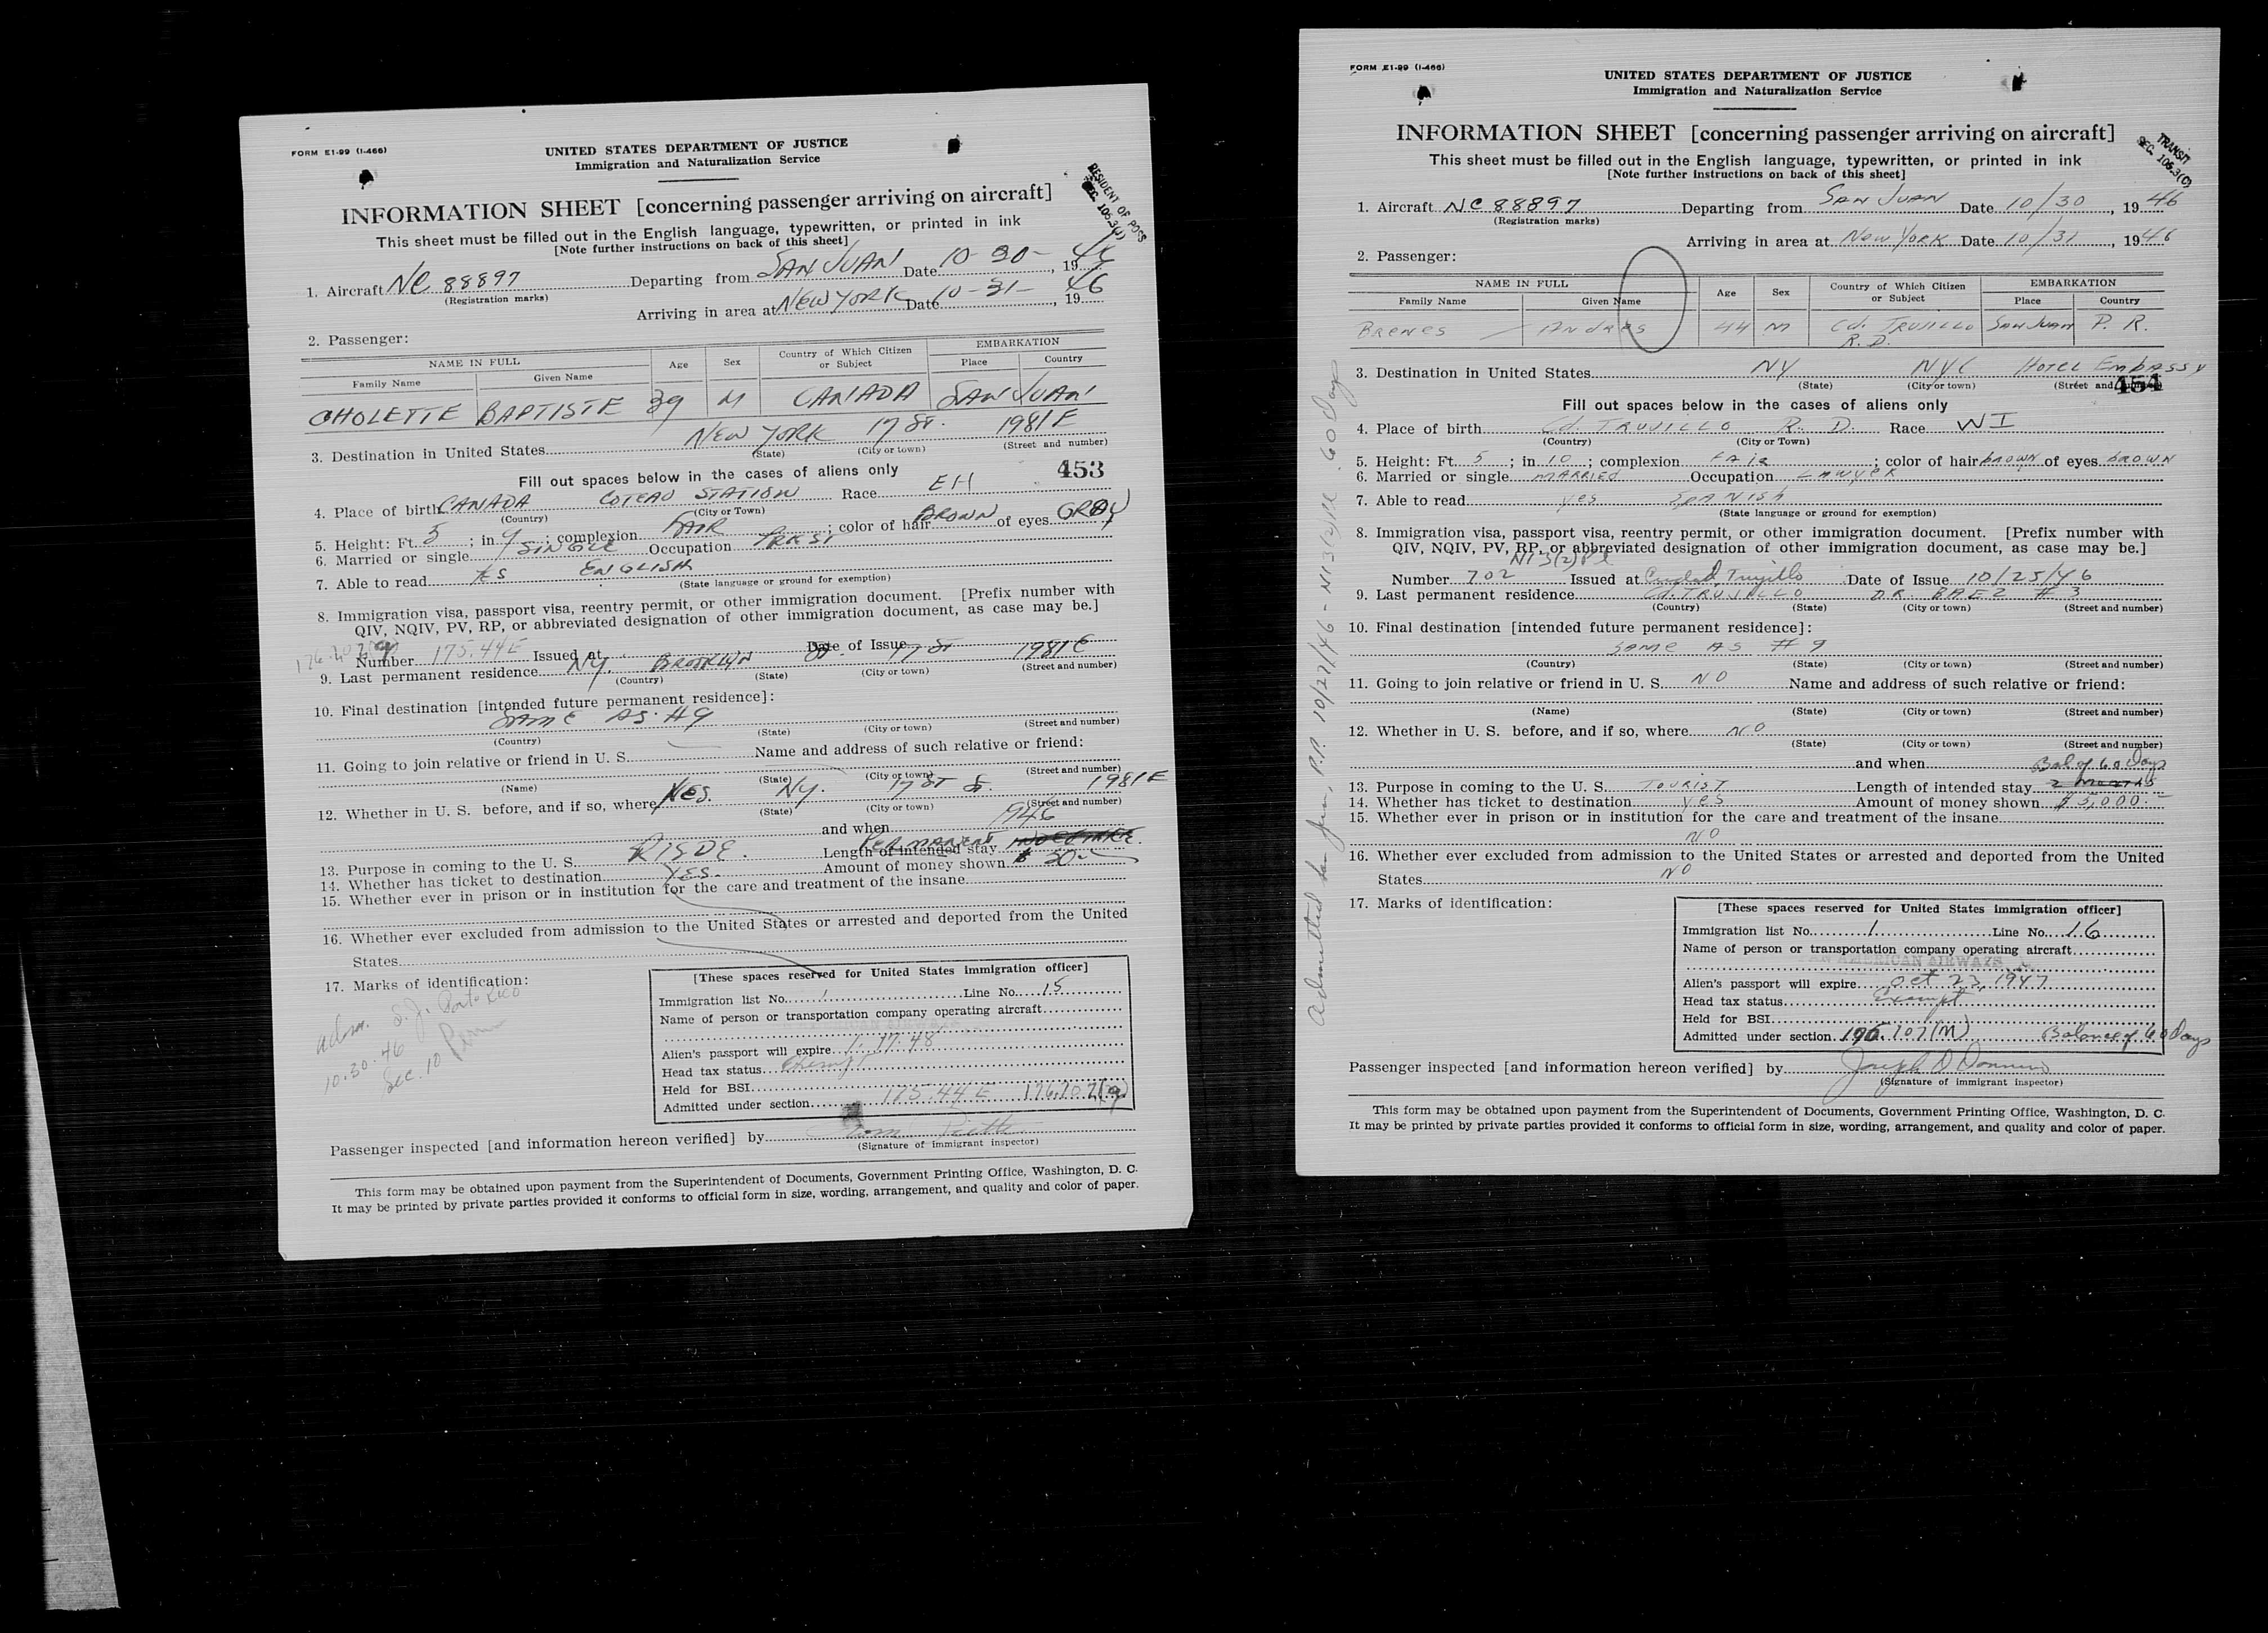 FORM E1-99 (I-466)
UNITED STATES DEPARTMENT OF JUSTICE
Immigration and Naturalization Service
RESIDENT OF POSS
SEC. 106.3(J)
INFORMATION SHEET [concerning passenger arriving on aircraft]
This sheet must be filled out in the English language, typewritten, or printed in ink
[Note further instructions on back of this sheet]
1. Aircraft NC 88897 Departing from SAN JUAN Date 10-30-, 1946
(Registration marks)
Arriving in area at NEW YORK Date 10-31-, 1946
2. Passenger:
NAME IN FULL Age Sex Country of Which Citizen or Subject EMBARKATION
Family Name Given Name Place Country
CHOLETTE BAPTISTE 39 M CANADA SAN JUAN
3. Destination in United States NEW YORK 17 St. 1981 E
(State) (City or town) (Street and number)
Fill out spaces below in the cases of aliens only 453
4. Place of birth CANADA COTEAU STATION Race EH
(Country) (City or Town)
5. Height: Ft. 5; in 9; complexion FAIR; color of hair BROWN of eyes GRAY
6. Married or single SINGLE Occupation PRKST
7. Able to read YES ENGLISH
(State language or ground for exemption)
8. Immigration visa, passport visa, reentry permit, or other immigration document. [Prefix number with
QIV, NQIV, PV, RP, or abbreviated designation of other immigration document, as case may be.]
176.107(q)
Number 175.44E Issued at Date of Issue
9. Last permanent residence NY. BROOKLYN 17 ST 1981 E
(Country) (State) (City or town) (Street and number)
10. Final destination [intended future permanent residence]:
SAME AS #9
(Country) (State) (City or town) (Street and number)
11. Going to join relative or friend in U. S. Name and address of such relative or friend:
(Name) (State) (City or town) (Street and number)
12. Whether in U. S. before, and if so, where YES. NY. 17 ST 1981 E
(State) (City or town) (Street and number)
and when 1946
PERMANENT
13. Purpose in coming to the U. S. RISDE. Length of intended stay
14. Whether has ticket to destination YES. Amount of money shown $ 30
15. Whether ever in prison or in institution for the care and treatment of the insane
16. Whether ever excluded from admission to the United States or arrested and deported from the United
States
17. Marks of identification:
adm. S.J. Porto Rico
10.30.46 Perm
Sec. 10
[These spaces reserved for United States immigration officer]
Immigration list No. 1 Line No. 15
Name of person or transportation company operating aircraft
Alien's passport will expire 1.17.48
Head tax status exempt
Held for BSI
Admitted under section 175.44 E 176.107(q)
Passenger inspected [and information hereon verified] by
(Signature of immigrant inspector)
This form may be obtained upon payment from the Superintendent of Documents, Government Printing Office, Washington, D. C.
It may be printed by private parties provided it conforms to official form in size, wording, arrangement, and quality and color of paper.
FORM E1-99 (I-466)
UNITED STATES DEPARTMENT OF JUSTICE
Immigration and Naturalization Service
TRANSIT
SEC. 106.3(C)
INFORMATION SHEET [concerning passenger arriving on aircraft]
This sheet must be filled out in the English language, typewritten, or printed in ink
[Note further instructions on back of this sheet]
1. Aircraft NC 88897 Departing from SAN JUAN Date 10/30, 1946
(Registration marks)
Arriving in area at NEW YORK Date 10/31, 1946
2. Passenger:
NAME IN FULL Age Sex Country of Which Citizen or Subject EMBARKATION
Family Name Given Name Place Country
BRENES ANDRES 44 M Cd. TRUJILLO R. D. SAN JUAN P. R.
3. Destination in United States NY NYC HOTEL EMBASSY
(State) (City or town) (Street and number)
454
Fill out spaces below in the cases of aliens only
4. Place of birth Cd. TRUJILLO R. D. Race WI
(Country) (City or Town)
5. Height: Ft. 5; in 10; complexion FAIR; color of hair BROWN of eyes BROWN
6. Married or single MARRIED Occupation LAWYER
7. Able to read yes SPANISH
(State language or ground for exemption)
8. Immigration visa, passport visa, reentry permit, or other immigration document. [Prefix number with
QIV, NQIV, PV, RP, or abbreviated designation of other immigration document, as case may be.]
NI 3(2) PL
Number 702 Issued at Ciudad Trujillo Date of Issue 10/25/46
9. Last permanent residence Cd. TRUJILLO DR. BAEZ #3
(Country) (State) (City or town) (Street and number)
10. Final destination [intended future permanent residence]:
SAME AS #9
(Country) (State) (City or town) (Street and number)
11. Going to join relative or friend in U. S. NO Name and address of such relative or friend:
(Name) (State) (City or town) (Street and number)
12. Whether in U. S. before, and if so, where NO
(State) (City or town) (Street and number)
and when
Bal of 60 Days
13. Purpose in coming to the U. S. TOURIST Length of intended stay 2 MONTHS
14. Whether has ticket to destination yes Amount of money shown $ 5,000.-
15. Whether ever in prison or in institution for the care and treatment of the insane
NO
16. Whether ever excluded from admission to the United States or arrested and deported from the United
States NO
17. Marks of identification:
[These spaces reserved for United States immigration officer]
Immigration list No. 1 Line No. 16
Name of person or transportation company operating aircraft
PAN AMERICAN AIRWAYS
Alien's passport will expire Oct 23, 1947
Head tax status Exempt
Held for BSI
Admitted under section 176.107(M) Balance of 60 Days
Passenger inspected [and information hereon verified] by
(Signature of immigrant inspector)
This form may be obtained upon payment from the Superintendent of Documents, Government Printing Office, Washington, D. C.
It may be printed by private parties provided it conforms to official form in size, wording, arrangement, and quality and color of paper.
Admitted San Juan, P.R. 10/27/46 - NI 3(2) PL 60 Days